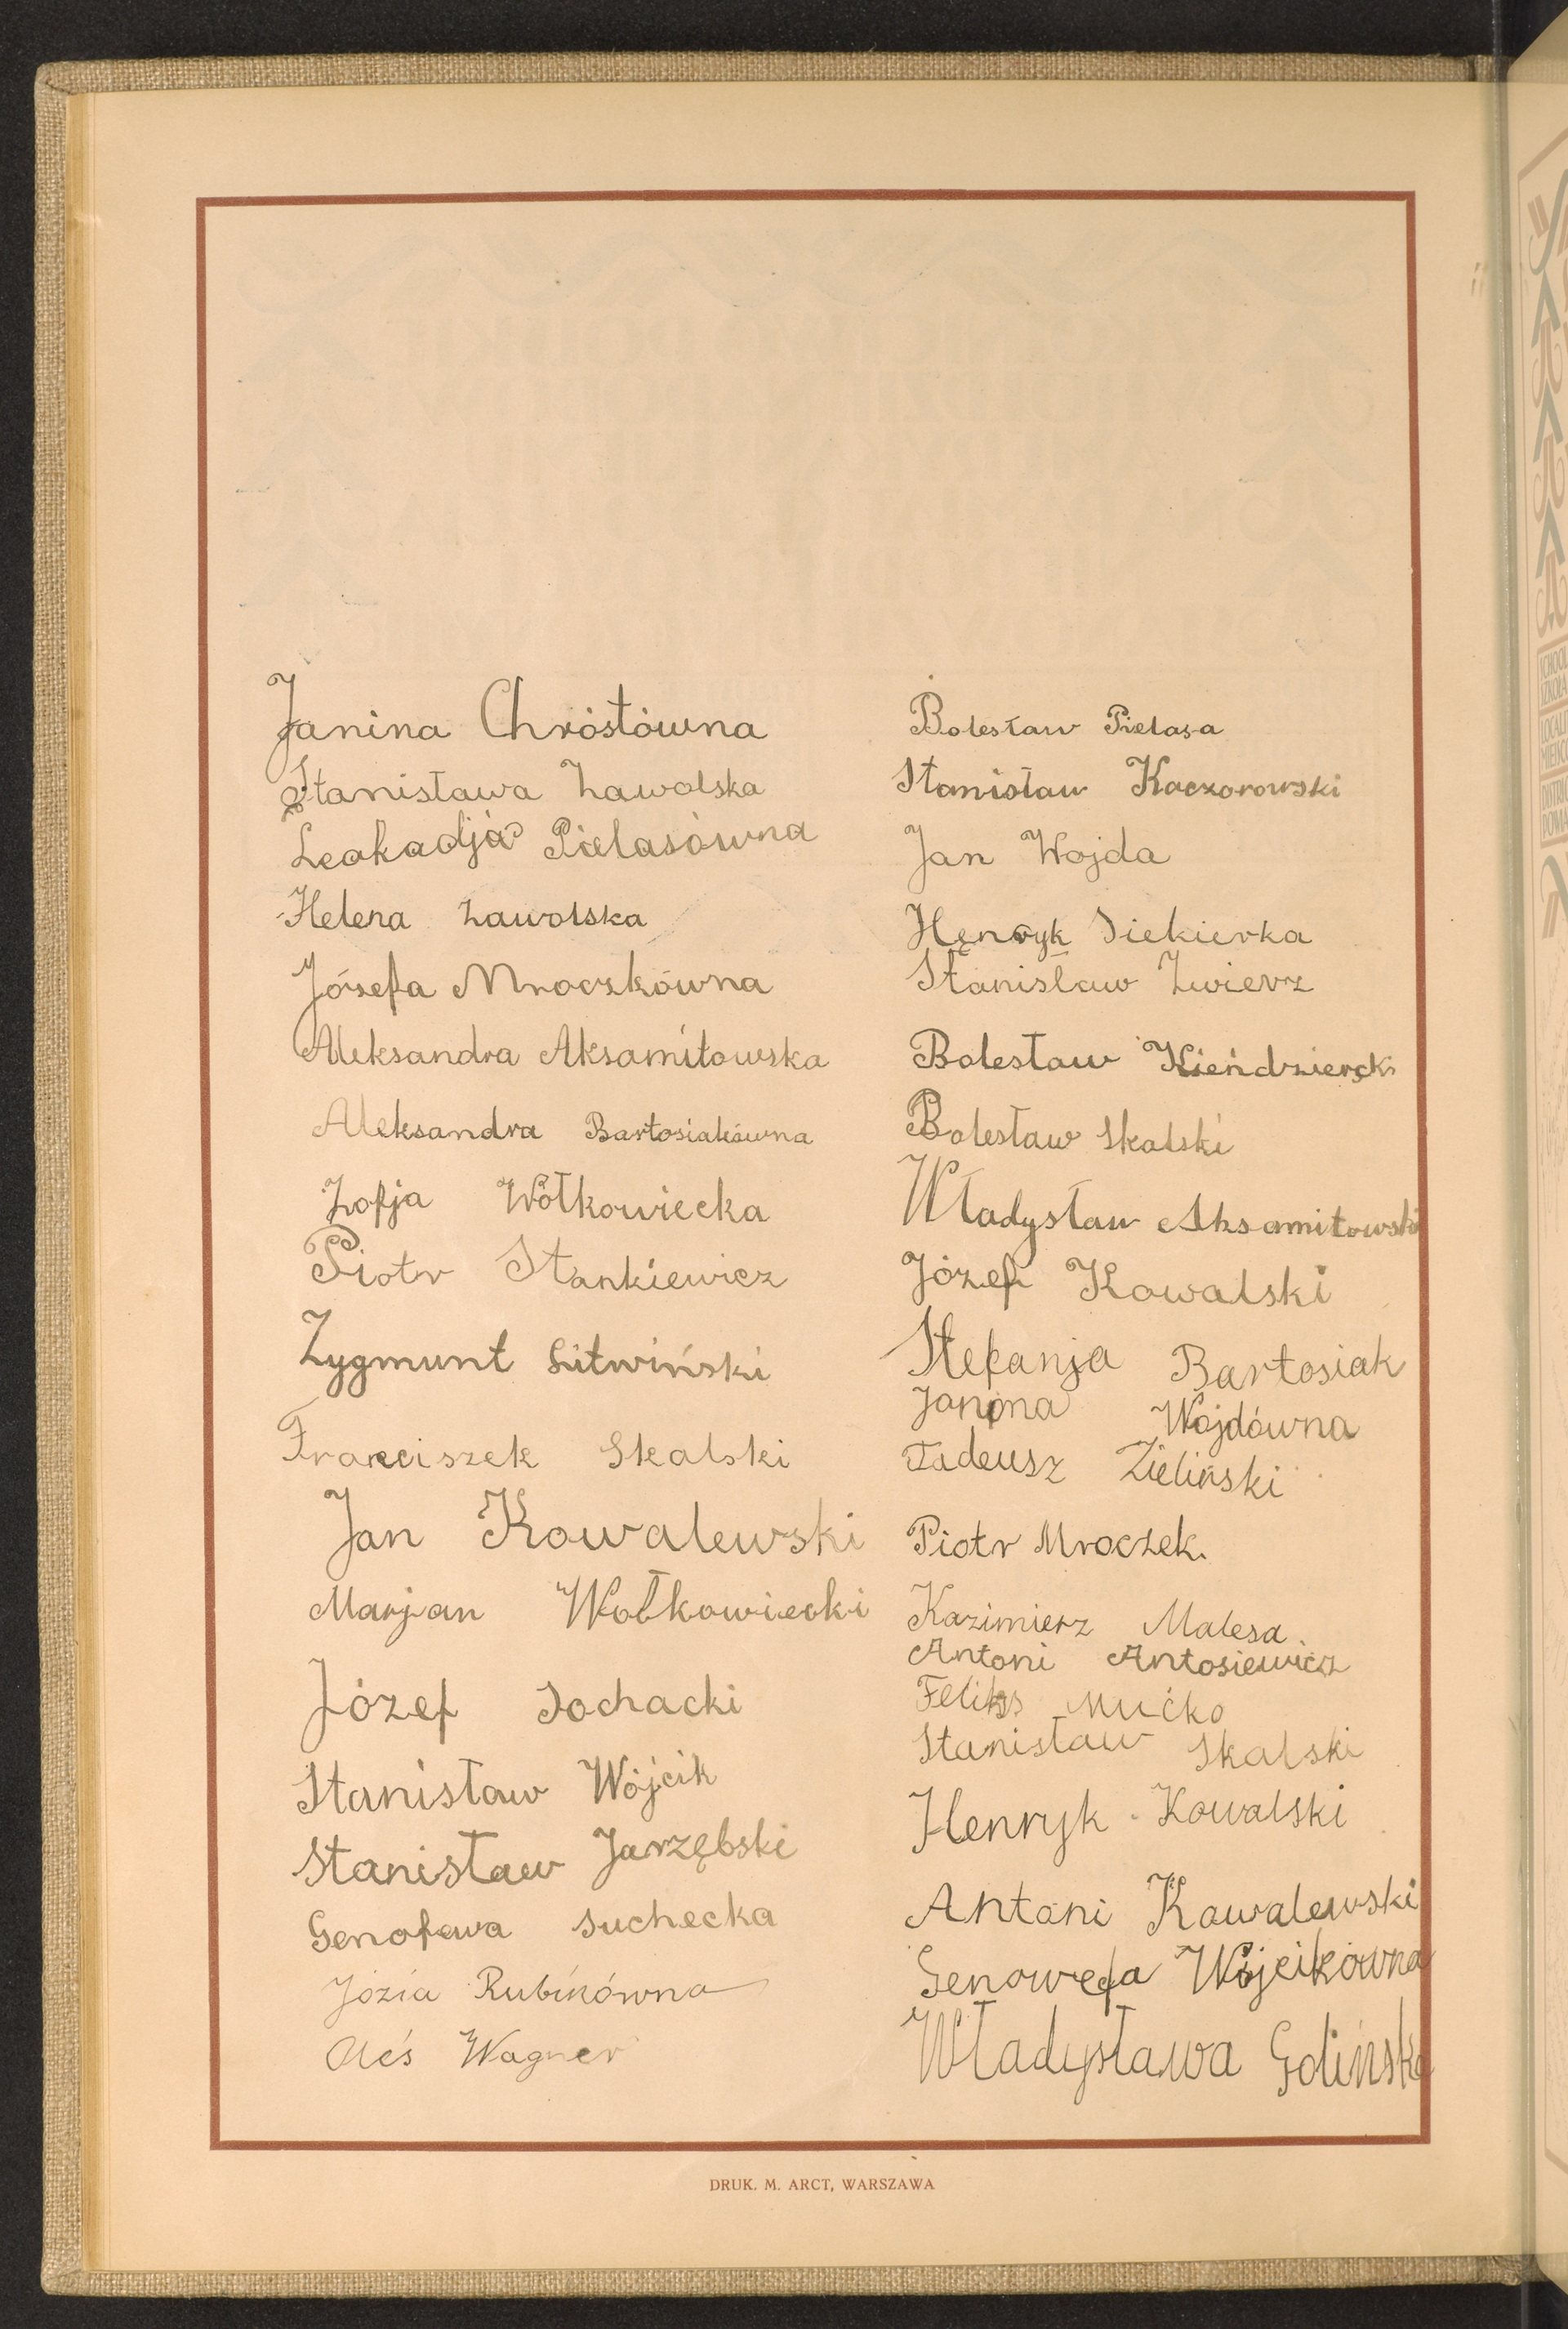 Janina Chróstówna
Stanisława Zawolska
Leokadja Pielasówna
Helena Zawolska
Józefa Mroczkówna
Aleksandra Aksamitowska
Aleksandra Bartosiakówna
Zofja Wółkowiecka
Piotr Stankiewicz
Zygmunt Litwiński
Franciszek Skalski
Jan Kowalewski
Marjan Wołkowiecki
Józef Sochacki
Stanisław Wójcik
Stanisław Jarzębski
Genofewa Suchecka
Józia Rubinówna
Oleś Wagner
Bolesław Pielasa
Stanisław Kaczorowski
Jan Wojda
Henryk Siekierka
Stanisław Zwierz
Bolesław
Bolesław Skalski
Władysław Aksamitowski
Józef Kowalski
Stefanja Bartosiak
Janina Wojdówna
Tadeusz Zieliński
Piotr Mroczek.
Kazimierz Malesa
Antoni Antosiewicz
Feliks Mućko
Stanisław Skalski
Henryk Kowalski
Antoni Kowalewski
Genowefa Wójcikówna
Władysława Golińska
DRUK. M. ARCT, WARSZAWA